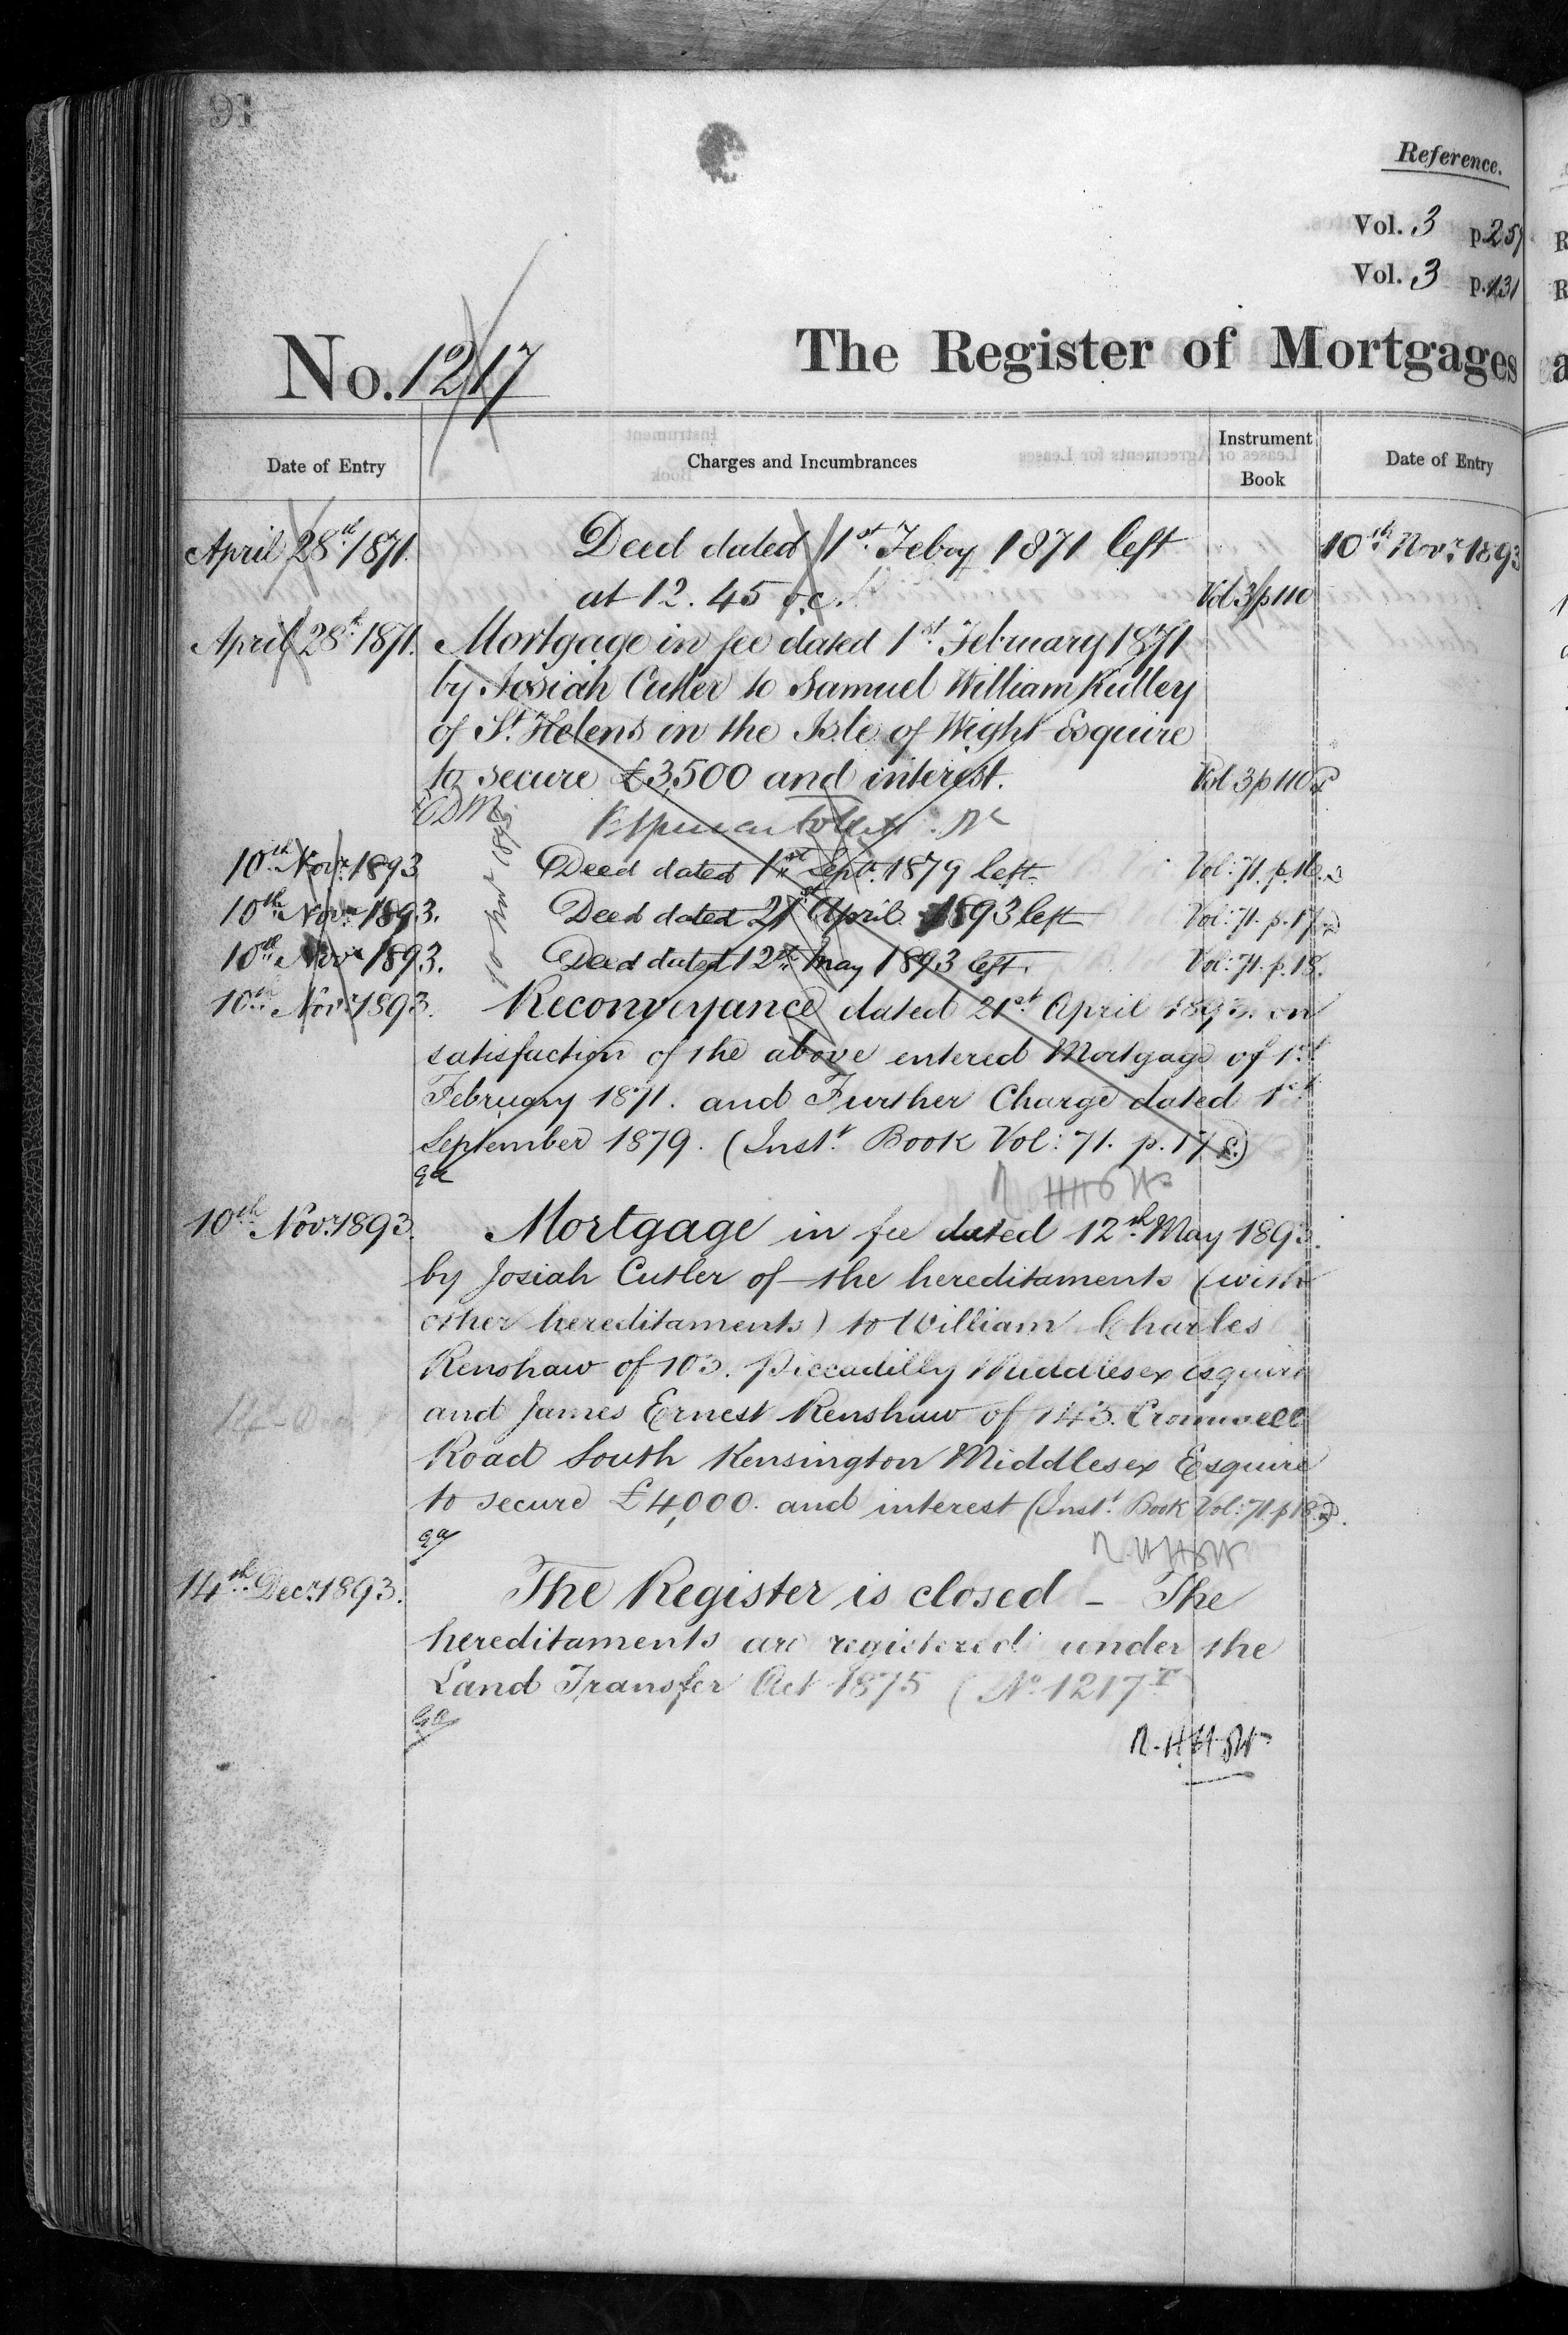 91
Reference.
Vol. 3 p. 257
Vol. 3 p. 131
No. 1217
The Register of Mortgages
Date of Entry
Charges and Incumbrances
Instrument Book
Date of Entry
April 28th 1871. Deed dated 1st Feby 1871 left 10th Novr. 1893
at 12.45 o.c. Vol 3/p 110
April 28th 1871. Mortgage in fee dated 1st February 1871
by Josiah Cutler to Samuel William Ridley
of St. Helens in the Isle of Wight Esquire
to secure £3,500 and interest. Vol 3 p 110
10th Novr. 1893 Deed dated 1st Septr. 1879 left. Vol: 71. p. 16.
10th Novr. 1893. Deed dated 21st April 1893 left Vol: 71. p. 17.
10th Novr. 1893. Deed dated 12th May 1893 left. Vol: 71. p. 18.
10th Novr. 1893. Reconveyance dated 21st April 1893. on
satisfaction of the above entered Mortgage of 1st
February 1871. and Further Charge dated 1st
September 1879. (Inst. Book Vol: 71. p. 17
10th Novr. 1893. Mortgage in fee dated 12th May 1893.
by Josiah Cutler of the hereditaments (with
other hereditaments) to William Charles
Renshaw of 103. Piccadilly Middlesex Esquire
and James Ernest Renshaw of 143. Cromwell
Road South Kensington Middlesex Esquire
to secure £4,000. and interest (Inst. Book Vol: 71. p 18
14th Decr. 1893. The Register is closed - The
hereditaments are registered under the
Land Transfer Act 1875 (No. 1217